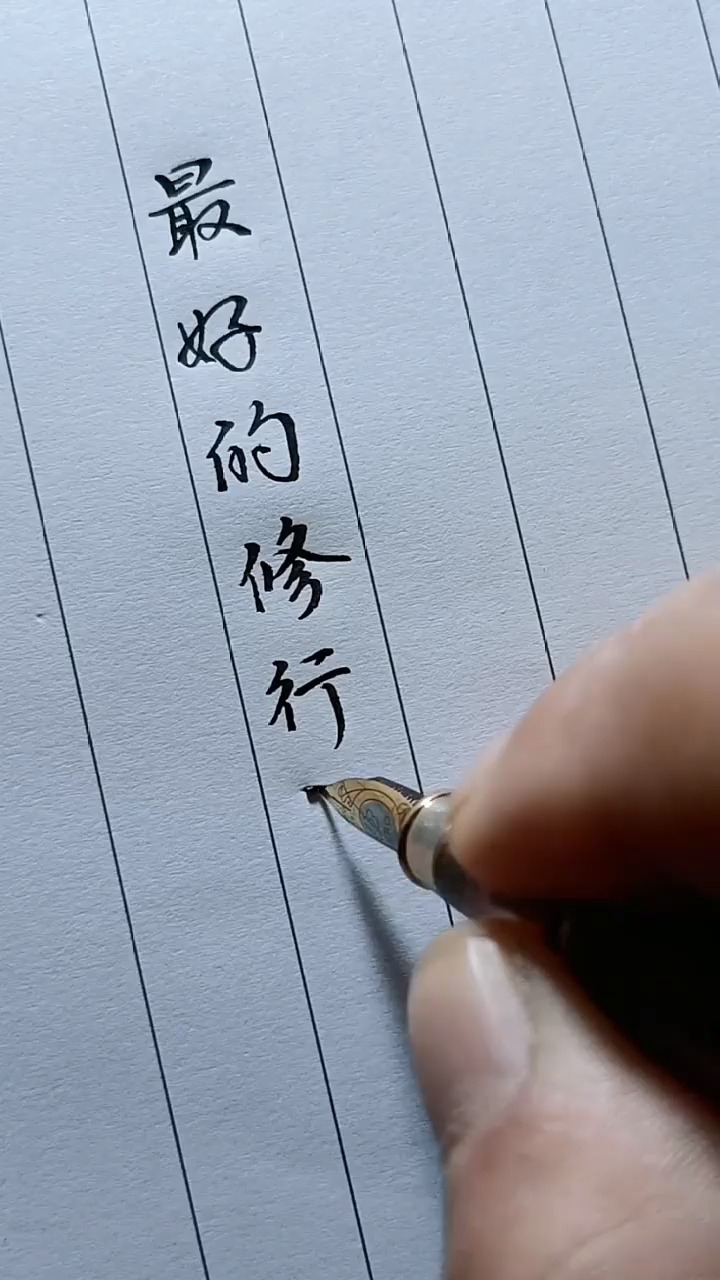 最好的修行